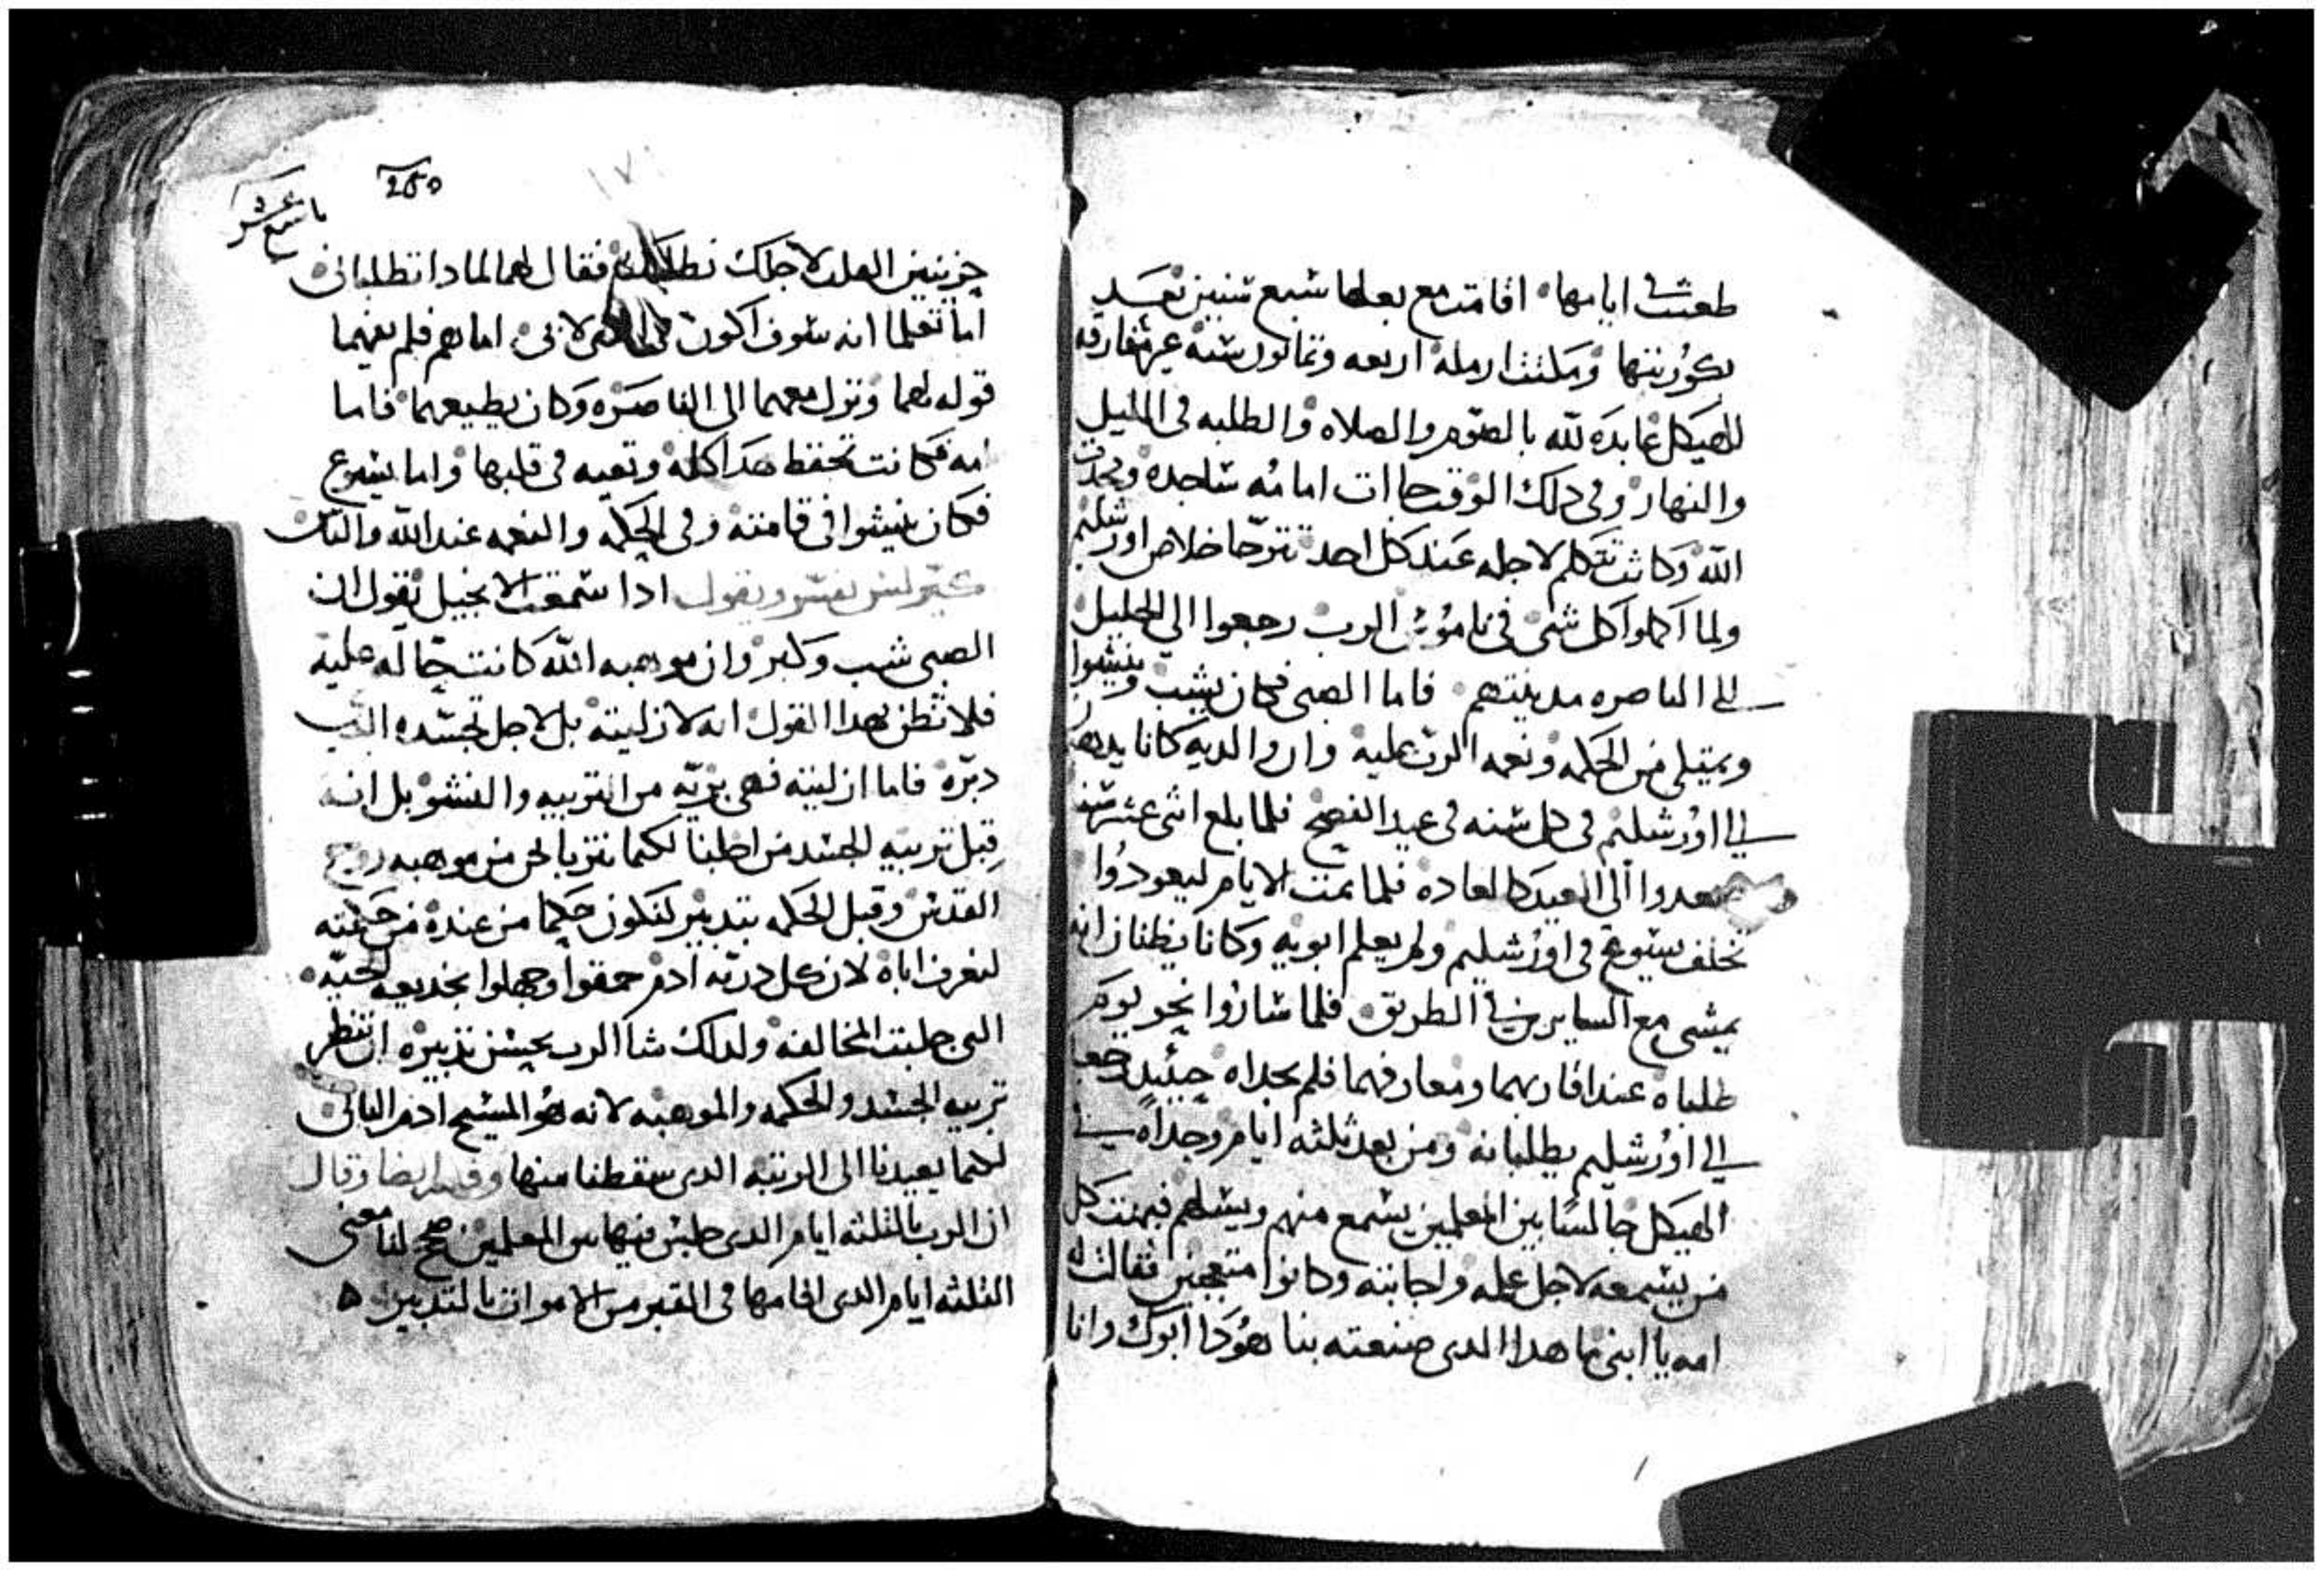 طعنت في ايامها اقامت مع بعلها سبع سنين بعد
بكوريتها ومكثت ارملة اربعه وثمانون سنة غير مفارقه
للهيكل عابدة لله بالصوم والصلاه والطلبه في الليل
والنهار وفي دلك الوقت جاات امامه ساجدة ومجدت
الله وكانت تتكلم لاجله عند كل احد تترجا خلاص اورشليم
ولما اكملوا كل شي في ناموس الرب رجعوا الى الجليل
الى الناصره مدينتهم فاما الصبى فكان يشب وينشوا
ويمتلى من الحكمه ونعمه الرب عليه وان والديه كانا يدهبا
الى اورشليم في كل سنه في عيد الفصح فلما بلغ اثنى عشر سنه
صعدوا الى العيد كالعاده فلما تمت الايام ليعودوا
تخلف يسوع في اورشليم ولم يعلم ابويه وكانا يظنان انه
يمشى مع السايرين في الطريق فلما ساروا نحو يوم
طلباه عند اقاربهما ومعارفهما فلم يجداه حينيد رجعا
الى اورشليم يطلبانه ومن بعد ثلثه ايام وجداه في
الهيكل جالسا بين المعلمين يسمع منهم ويسلهم فبهت كل
من يسمعه لاجل علمه واجابته وكانوا متعجبين فقالت له
امه يا ابنى ما هدا الدى صنعته بنا هودا ابوك وانا
250
تاسع عشر
حزينين القلب لاجلك نطلبك فقال لهما لمادا تطلبانى
اما تعلما انه سوف اكون لابى اما هم فلم يفهما
قوله لهما ونزل معهما الى الناصره وكان يطيعهما فاما
امه فكانت تحفظ هدا كله وتعيه في قلبها واما يسوع
فكان ينشوا في قامته وفى الحكمه والنعمه عند الله والناس
كيرلس يفسر ويقول ادا سمعت الانجيل يقول ان
الصبى شب وكبر وان موهبه الله كانت حاله عليه
فلا تظن بهدا القول انه لازليته بل لاجل تجسده الدى
دبره فاما ازليته فهى بريه من التربيه والنشو بل انه
قبل تربيه الجسد من اجلنا لكما نتربا نحن من موهبه روح
القدس وقبل الحكمه بتدبير لنكون حكما من عنده من حكمته
لنعرف اباه لان كل دريه ادم حمقوا وجهلوا بخديعه الحيه
التى جلبت المخالفه ولدلك شا الرب بحسن تدبيره ان تنظر
تربيه الجسد والحكمه والموهبه لانه هو المسيح ادم الثانى
لكما يعيدنا الى الرتبه الدى سقطنا منها وفسر ايضا وقال
ان الرب بالثلثه ايام الدى جلس فيها بين المعلمين صح لنا معنى
الثلثه ايام الدى اقامها فى القبر من الاموات بالتدبير